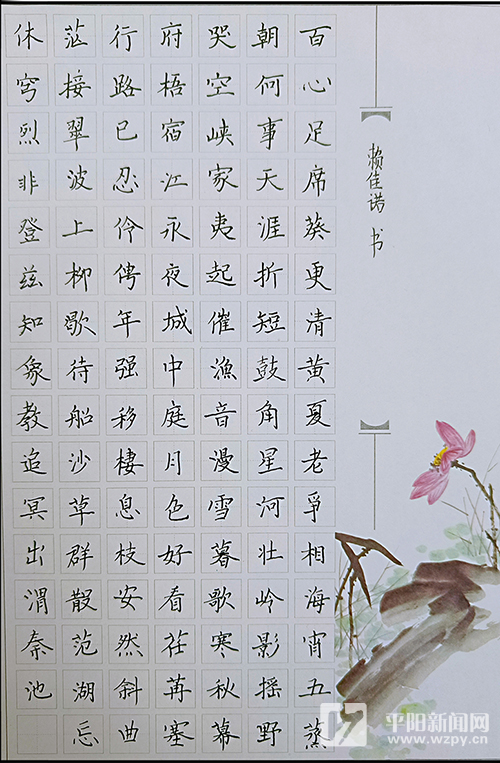 赖佳诺 书
百心足席葵更清黄夏老爭相海宵五蒸
朝何事天涯折短鼓角星河壮岭影摇野
哭空峡家夷起催漁音漫雪暮歌寒秋幕
府梧宿江永夜城中庭月色好看荏苒塞
行路已忍伶俜年强移棲息枝安然斜曲
茫接翠波上柳歇待船沙草群散范湖忘
休穹烈非登兹知象教追冥出渭秦池
平阳新闻网
www.wzpy.cn